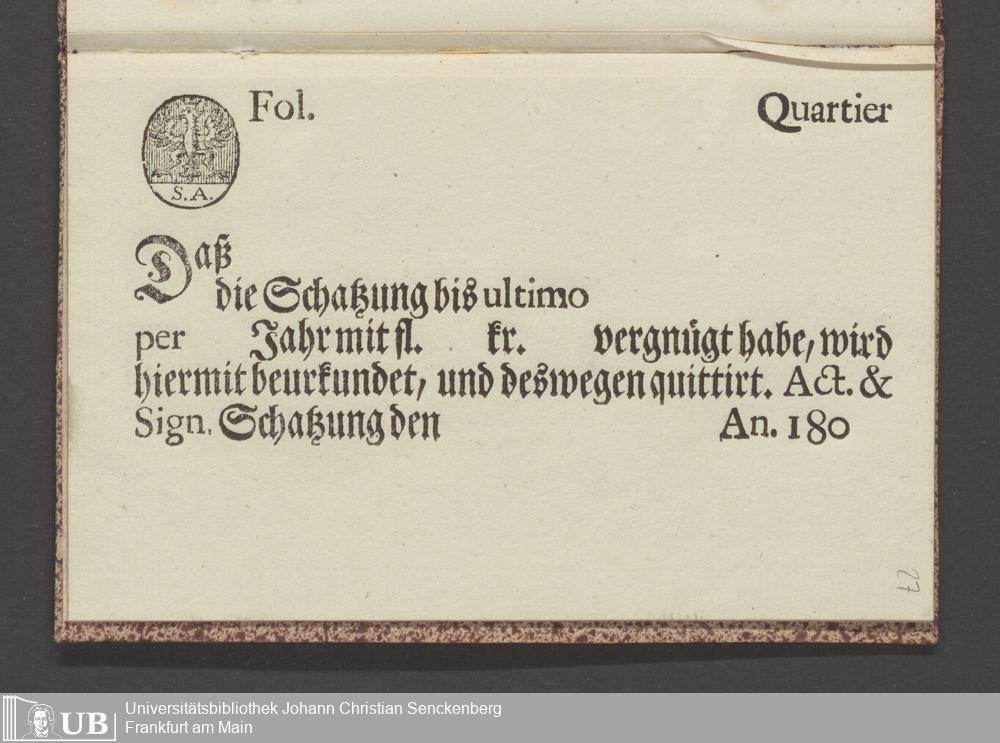 Fol. Quartier
S. A.
Daß
die Schatzung bis ultimo
per Jahr mit fl. kr. vergnügt habe, wird
hiermit beurkundet, und deswegen quittirt. Act. &
Sign. Schatzung den An. 180
27
UB Universitätsbibliothek Johann Christian Senckenberg
Frankfurt am Main